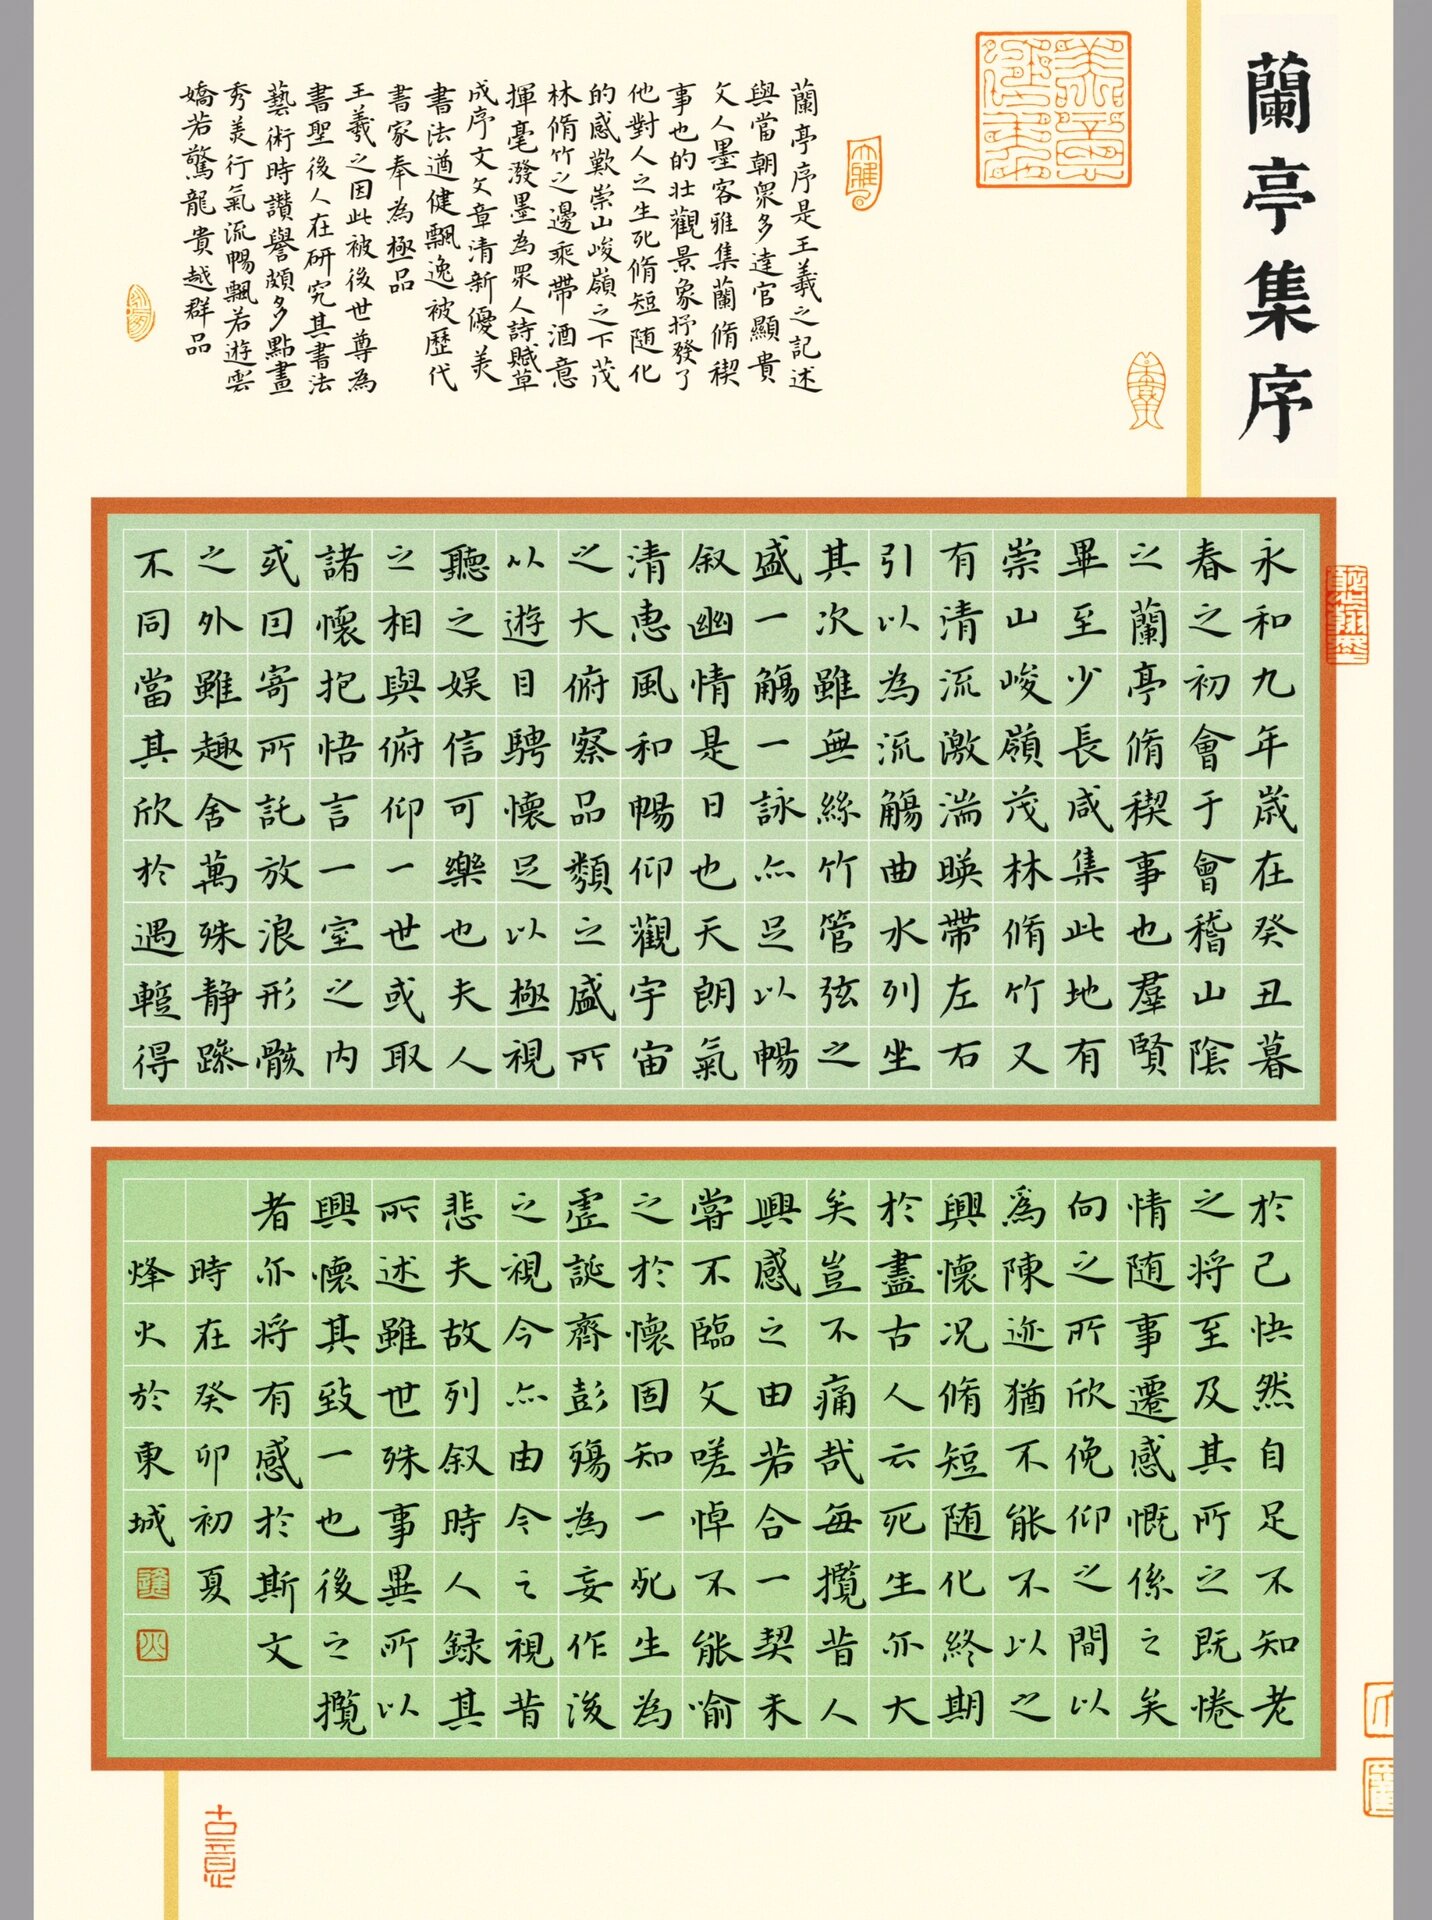 蘭亭集序
蘭亭序是王羲之記述
與當朝衆多達官顯貴
文人墨客雅集蘭脩稧
事也的壯觀景象抒發了
他對人之生死脩短随化
的感歎崇山峻嶺之下茂
林脩竹之邊乘帶酒意
揮毫潑墨為眾人詩賦草
成序文文章清新優美
書法遒健飄逸被歷代
書家奉為極品
王羲之因此被後世尊為
書聖後人在研究其書法
藝術時讚譽頗多點畫
秀美行氣流暢飄若遊雲
嬌若驚龍貴越群品
永和九年歲在癸丑暮
春之初會于會稽山陰
之蘭亭脩稧事也羣賢
畢至少長咸集此地有
崇山峻嶺茂林脩竹又
有清流激湍暎帶左右
引以為流觴曲水列坐
其次雖無絲竹管弦之
盛一觴一詠亦足以暢
叙幽情是日也天朗氣
清惠風和暢仰觀宇宙
之大俯察品類之盛所
以遊目騁懷足以極視
聽之娛信可樂也夫人
之相與俯仰一世或取
諸懷抱悟言一室之內
或因寄所託放浪形骸
之外雖趣舍萬殊静躁
不同當其欣於遇蹔得
於己怏然自足不知老
之將至及其所之既惓
情随事遷感慨係之矣
向之所欣俛仰之間以
爲陳迹猶不能不以之
興懷況脩短随化終期
於盡古人云死生亦大
矣豈不痛哉每攬昔人
興感之由若合一契未
嘗不臨文嗟悼不能喻
之於懷固知一死生為
虛誕齊彭殤為妄作後
之視今亦由今之視昔
悲夫故列叙時人録其
所述雖世殊事異所以
興懷其致一也後之攬
者亦將有感於斯文
時在癸卯初夏
烽火於東城
古意